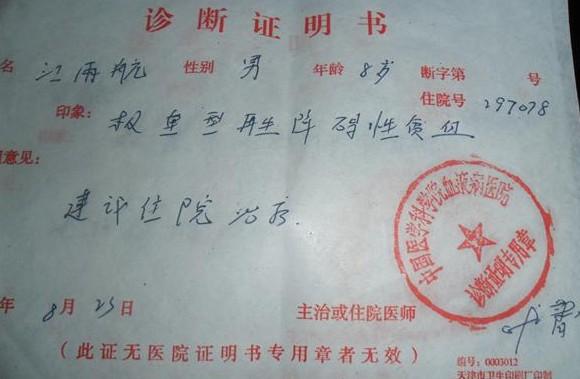 诊断证明书
名 江雨航 性别 男 年龄 8岁 断字第 号
住院号 297078
印象: 极重型再生障碍性贫血
意见:
建议住院治疗.
中国医学科学院血液病医院
诊断证明专用章
年 8月23日 主治或住院医师
(此证无医院证明书专用章者无效)
编号: 0003012
天津市卫生印刷厂印制